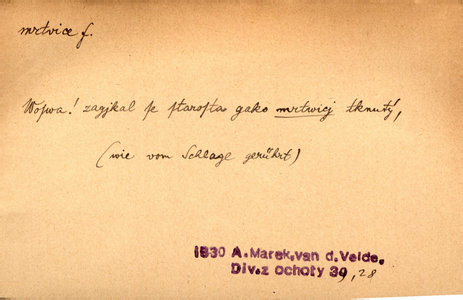 mrtvice f.
Wojwa! zagjkal se starosta gako mrtwicj tknutý,
(wie vom Schlage gerührt)
1830 A. Marek, van d. Velde,
Div. z ochoty 39, 28